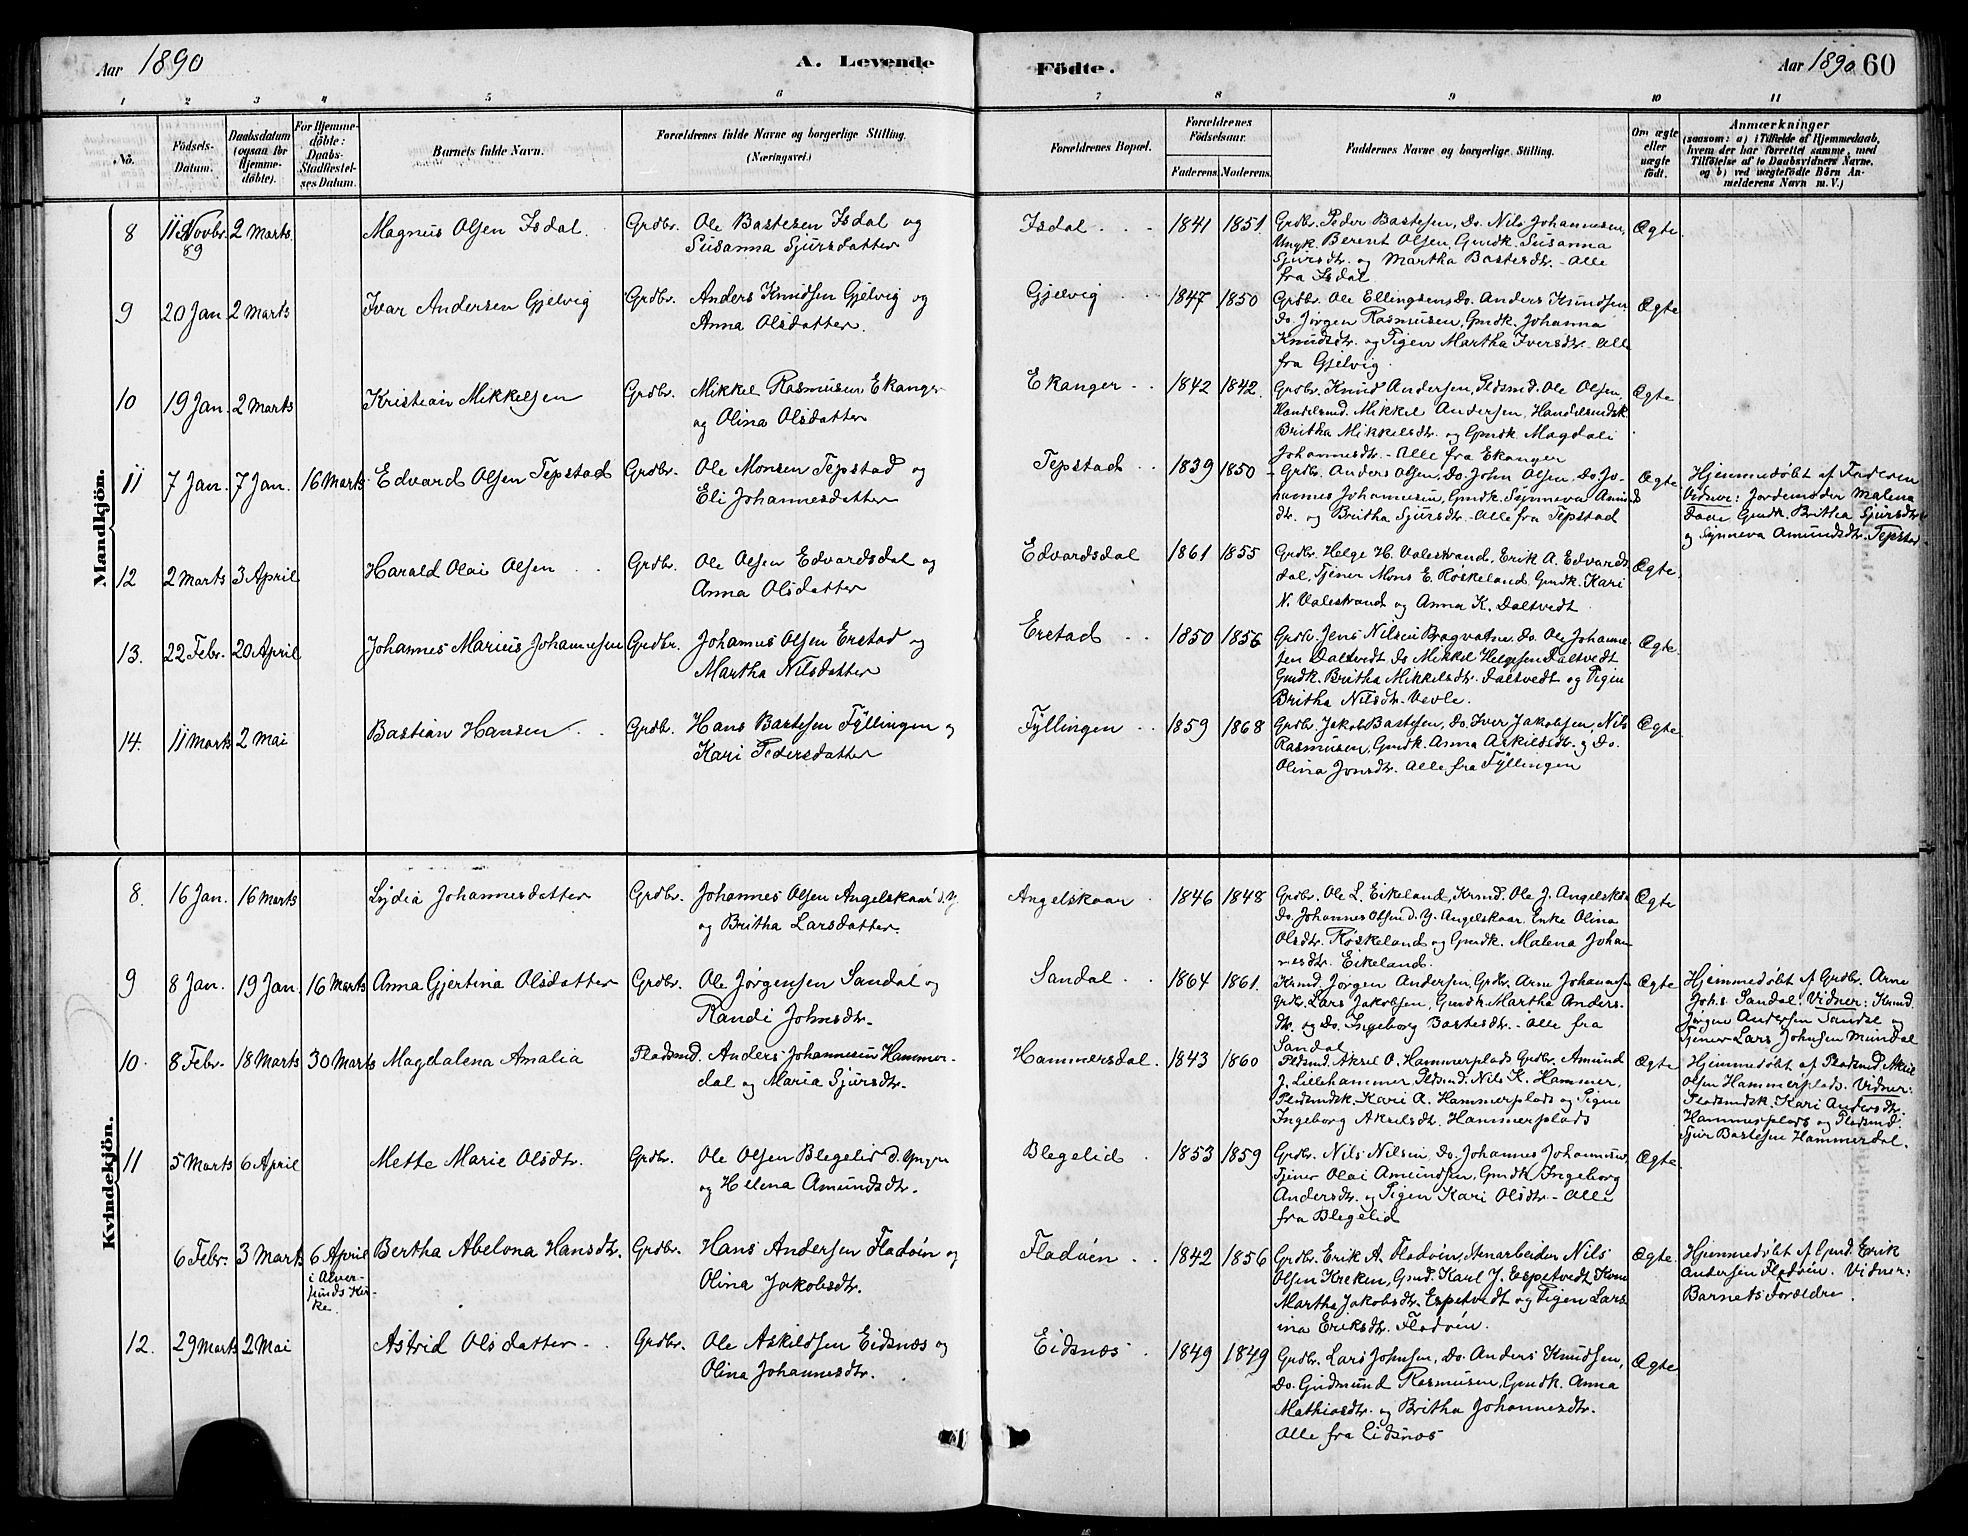 Aar 1890
A. Levende
Födte.
Aar 1890 60
1 2 3 4 5 6 7 8 9 10 11
No.
Födsels-
Datum.
Daabsdatum
(ogsaa for
Hjemme-
döbte).
For Hjemme-
döbte:
Daabs-
Stadfæstel-
ses Datum.
Barnets fulde Navn.
Forældrenes fulde Navne og borgerlige Stilling.
(Næringsvei.)
Forældrenes Bopæl.
Forældrenes
Födselsaar.
Faderens. Moderens.
Faddernes Navne og borgerlige Stilling.
Om ægte
eller
uægte
født.
Anmærkninger
(saasom: a) i Tilfælde af Hjemmedaab,
hvem der har forrettet samme, med
Tilföielse af to Daabsvidners Navne.
og b) ved uægtefödte Börn An-
melderens Navn m. V.)
Mandkjön.
8 11 Novbr. 89 2 Marts Magnus Olsen Isdal Grdbr. Ole Bastesen Isdal og
Susanna Sjursdatter
Isdal 1841 1851 Grdbr. Peder Bastesen, Do. Nils Johannesen, Ægte
Ungk. Berent Olsen, Gmdk. Susanna
Sjursdtr. og Martha Bastesdtr. - Alle
fra Isdal
9 20 Jan. 2 Marts Ivar Andersen Gjelvig Grdbr. Anders Knudsen Gjelvig og
Anna Olsdatter.
Gjelvig 1847 1850 Grdbr. Ole Ellingsen, Do. Anders Knudsen, Ægte
Do. Jørgen Rasmusen, Gmdk. Johanna
Knudsdtr. og Pigen Martha Iversdtr. - Alle
fra Gjelvig.
10 19 Jan. 2 Marts Kristian Mikkelsen Grdbr. Mikkel Rasmusen Ekanger
og Olina Olsdatter
Ekanger 1842 1842. Grdbr. Knud Andersen, Pldsmd. Ole Olsen, Ægte
Handelsmd. Mikkel Andersen, Handelsmdsk.
Britha Mikkelsdtr. og Gmdk. Magdali
Johannesdtr. - Alle fra Ekanger
11 7 Jan. 7 Jan. 16 Marts Edvard Olsen Tepstad Grdbr. Ole Monsen Tepstad og
Eli Johannesdatter
Tepstad 1839 1850 Grdbr. Anders Olsen, Do. John Olsen, Do. Jo- Ægte
hannes Johannesen, Gmdk. Synneva Amunds
dtr. og Britha Sjursdtr. - Alle fra Tepstad
Hjemmedøbt af Faderen
Vidner: Jordemoder Malena
Gmdk. Britha Sjursdtr.
og Synneva Amundsdtr. Tepstad.
12 2 Marts 3 April Harald Olai Olsen Grdbr. Ole Olsen Edvardsdal og
Anna Olsdatter
Edvardsdal 1861 1855 Grdbr. Helge H. Valestrand, Erik A. Edvards Ægte.
dal, Tjener Mons E. Røskeland, Gmdk. Kari
N. Valestrand og Anna K. Daltvedt.
13. 22 Febr. 20 April Johannes Marius Johannesen Grdbr. Johannes Olsen Erstad og
Martha Nilsdatter
Erstad 1850 1856 Grdbr. Jens Nilsen Bragvatn, Do. Ole Johanne- Ægte.
sen Daltvedt Do Mikkel Helgesen Daltvedt
Gmdk. Britha Mikkelsdtr. Daltvedt og Pigen
Britha Nilsdtr. Vevle.
14. 11 Marts 2 Mai Bastian Hansen Grdbr. Hans Bastesen Fyllingen og
Kari Pedersdatter
Fyllingen 1859 1868 Grdbr. Jakob Bastesen, Do. Iver Jakobsen, Nils Ægte
Rasmusen, Gmdk. Anna Askildsdtr. og Do.
Olina Jonsdtr. Alle fra Fyllingen
Kvindekjön.
8. 16 Jan. 16 Marts Lydia Johannesdatter Grdbr. Johannes Olsen Angelskaar d. Y
og Britha Larsdatter
Angelskaar 1846 1848 Grdbr. Ole L. Eikeland, Krmd. Ole J. Angelskaa Ægte
Do. Johannes Olsen d. Y. Angelskaar, Enke Olina
Olsdtr. Røskeland og Gmdk. Malena Johan
nesdtr. Eikeland.
9 8 Jan. 19 Jan. 16 Marts Anna Gjertina Olsdatter Grdbr. Ole Jørgensen Sandal og
Randi Johnsdtr.
Sandal 1864 1861. Krmd. Jørgen Andersen, Grdbr. Arne Johannesen Ægte
Grdbr. Lars Jakobsen, Gmdk. Martha Anders-
dtr. og Do. Ingeborg Bastesdtr. - Alle fra
Sandal
Hjemmedøbt af Grdbr. Arne
Johs. Sandal. Vidner: Krmd.
Jørgen Andersen Sandal og
Tjener Lars Johnsen Mundal
10. 8 Febr. 18 Marts 30 Marts Magdalena Amalia Pladsmd. Anders Johannesen Hammer-
dal og Maria Sjursdtr.
Hammersdal. 1843 1860 Pldsmd. Aksel O. Hammerplads Grdbr. Amund Ægte
J. Lillehammer, Pldsmd. Nils K. Hammer,
Pladsmdsk. Kari A. Hammerplads og Pigen
Ingeborg Akselsdtr. Hammerplads
Hjemmedøbt af Pladsmd. Aksel
Olsen Hammerplads. Vidner:
Pladsmdsk. Kari Andersdtr.
Hammerplads og Pladsmd.
Sjur Bastesen Hammerdal.
11 5 Marts 6 April Mette Marie Olsdtr. Grdbr. Ole Olsen Blegelid d. Yngre
og Helena Amundsdtr.
Blegelid. 1853 1859 Grdbr. Nils Nilsen, Do. Johannes Johannesen, Ægte.
Tjener Olai Amundsen, Gmdk. Ingeborg
Andersdtr. og Pigen Kari Olsdtr. - Alle
fra Blegelid
6 Febr. 3 Marts 6 April Bertha Abelona Hansdtr. Grdbr. Hans Andersen Fladvøen og
i Alver-
sunds Kir-
ke.
Olina Jakobsdtr.
Fladøen 1842 1856 Grdbr. Erik A. Fladøen, Stenarbeider Nils Ægte.
Olsen Kreken, Gmd. Karl J. Espetvedt Kone
Martha Jakobsdtr. Espetvedt og Pigen Lars
ina Eriksdtr. Fladøen.
Hjemmedøbt af Gmd. Erik
Andersen Fladøen. Vidner:
Barnets Forældre.
12. 29 Marts 2 Mai Astrid Olsdatter Grdbr. Ole Askildsen Eidsnæs og
Olina Johannesdtr.
Eidsnæs 1849 1849 Grdbr. Lars Johnsen, Do. Anders Knudsen, Ægte
Do. Gudmund Rasmusen, Gmdk. Anna
Mathiasdtr. og Britha Johannesdtr.
Alle fra Eidsnæs